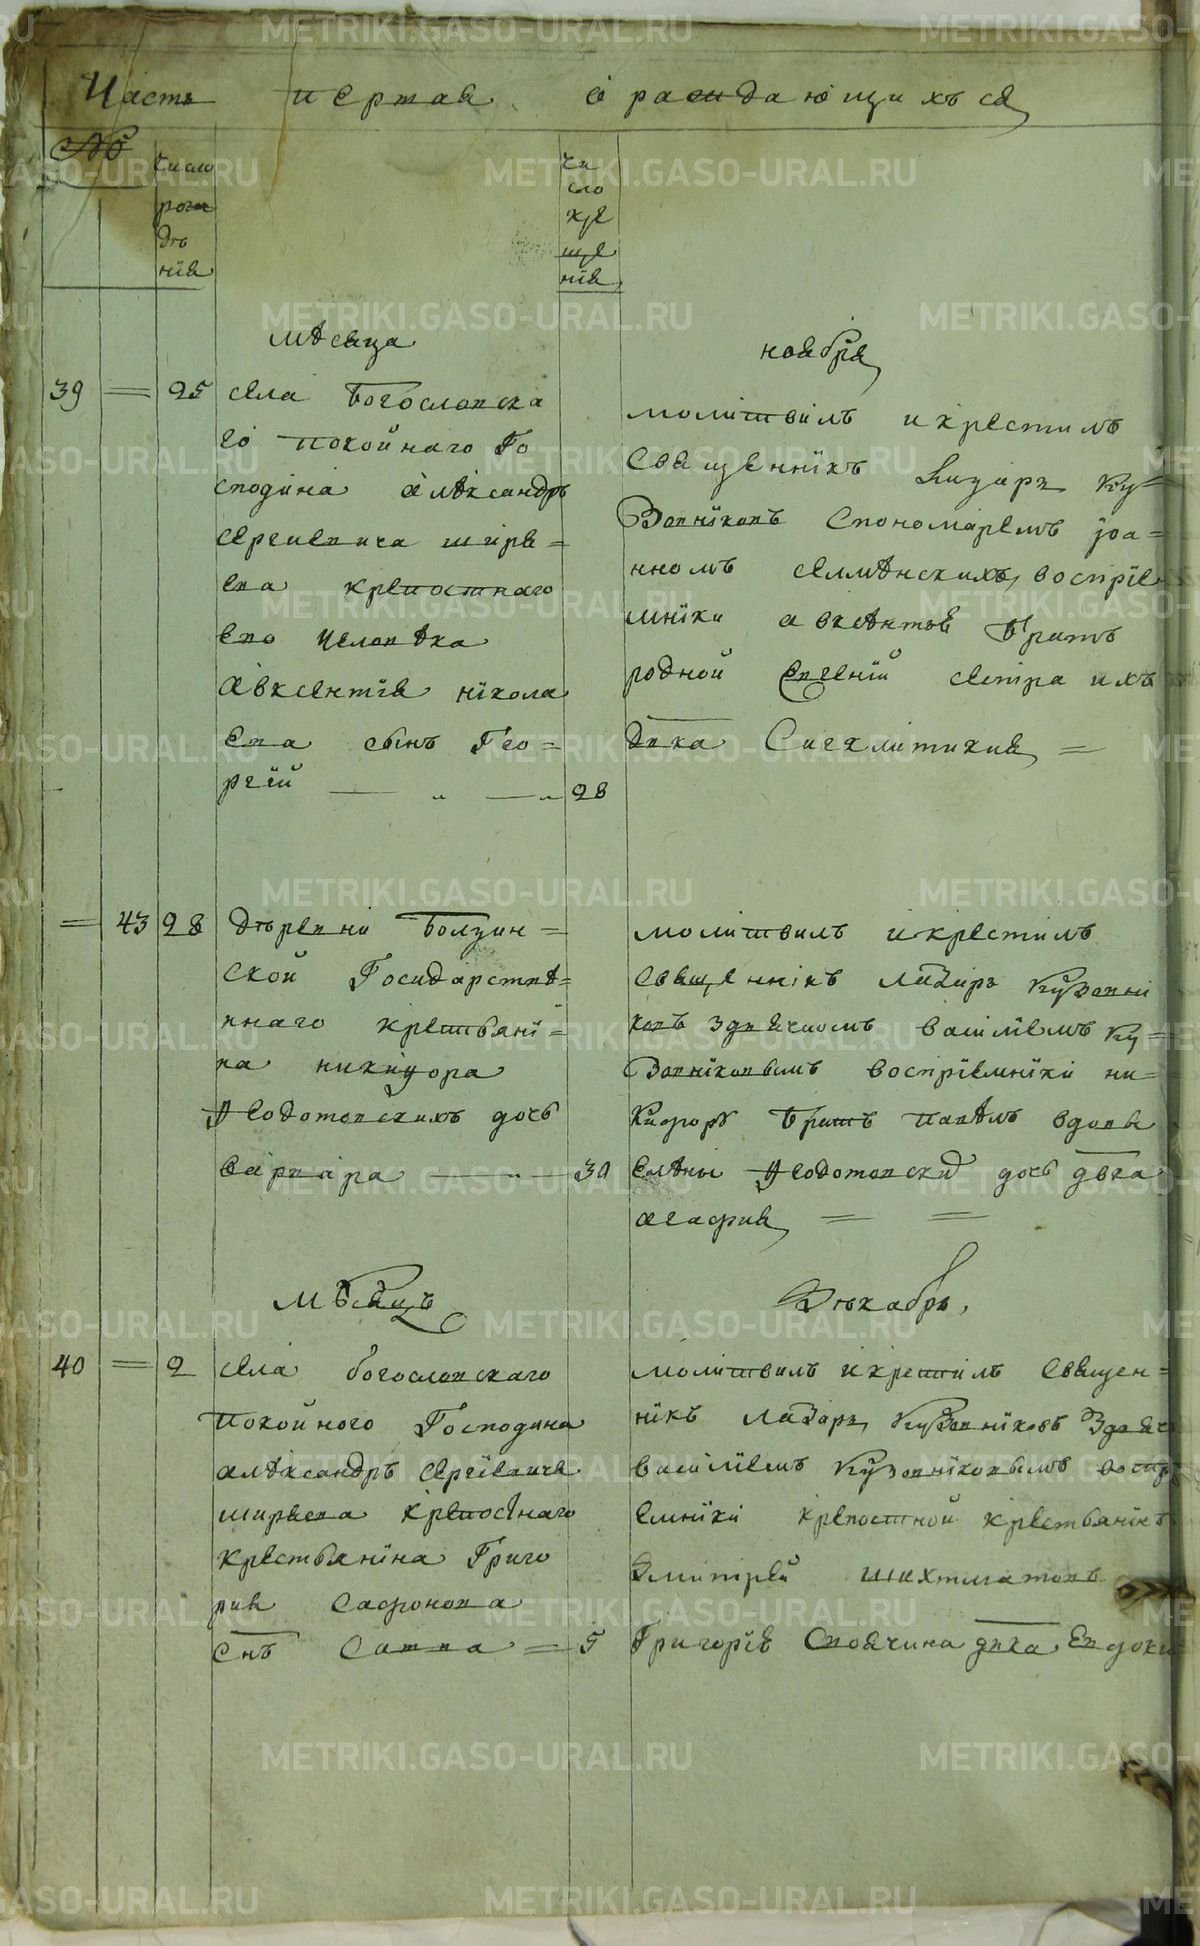 Часть первая о раждающихся
№
число рожд дѣ нія
чи сло кре ще нія
мѣсяца ноября
39 = 25 села богословска
го покойнаго Го
сподина алѣксандръ
сергиевича ширѣ=
ева крепостнаго
ево человѣка
авксентія нікола
ева сынъ Гео=
ргій — „ — „ 28
молитвилъ и крестилъ
священнікъ Лазарь Ку=
Зовніковъ Спономаремъ іоа=
нномъ селмѣнскихъ, воспріе
мніки авксѣнтья братъ
родной евгеній сестра ихъ
двка Сигклитикия =
= 43 28 дѣревни Болзин=
ской Государствѣ=
ннаго крестьяні=
на никифора
Ѳеодотовскихъ дочь
варвара — „ — 30
молитвилъ и крестилъ
священнікъ лазарь Кузовні
ковъ здьячкомъ василіемъ Ку=
Зовніковымъ воспріемніки ни=
кифоръ братъ павѣлъ вдовы
елѣны Ѳеодотовскй дочь двка
агафия = =
мѣсяцъ Дѣкабрь,
40 = 2 села богословскаго
покойного Господина
алѣксандръ сергіевича
ширѣева крепоснаго
крестьяніна Григо
рия Сафонова
снъ Савва = 5
молитвилъ и крестилъ священ=
нікъ лазарь Кузовніковъ Здьяч
василіемъ Кузовніковымъ воспр
емніки крепостной крестьянінъ
Дмитрей шихматовъ
Григорія Споячина двка Евдоки
METRIKI.GASO-URAL.RU